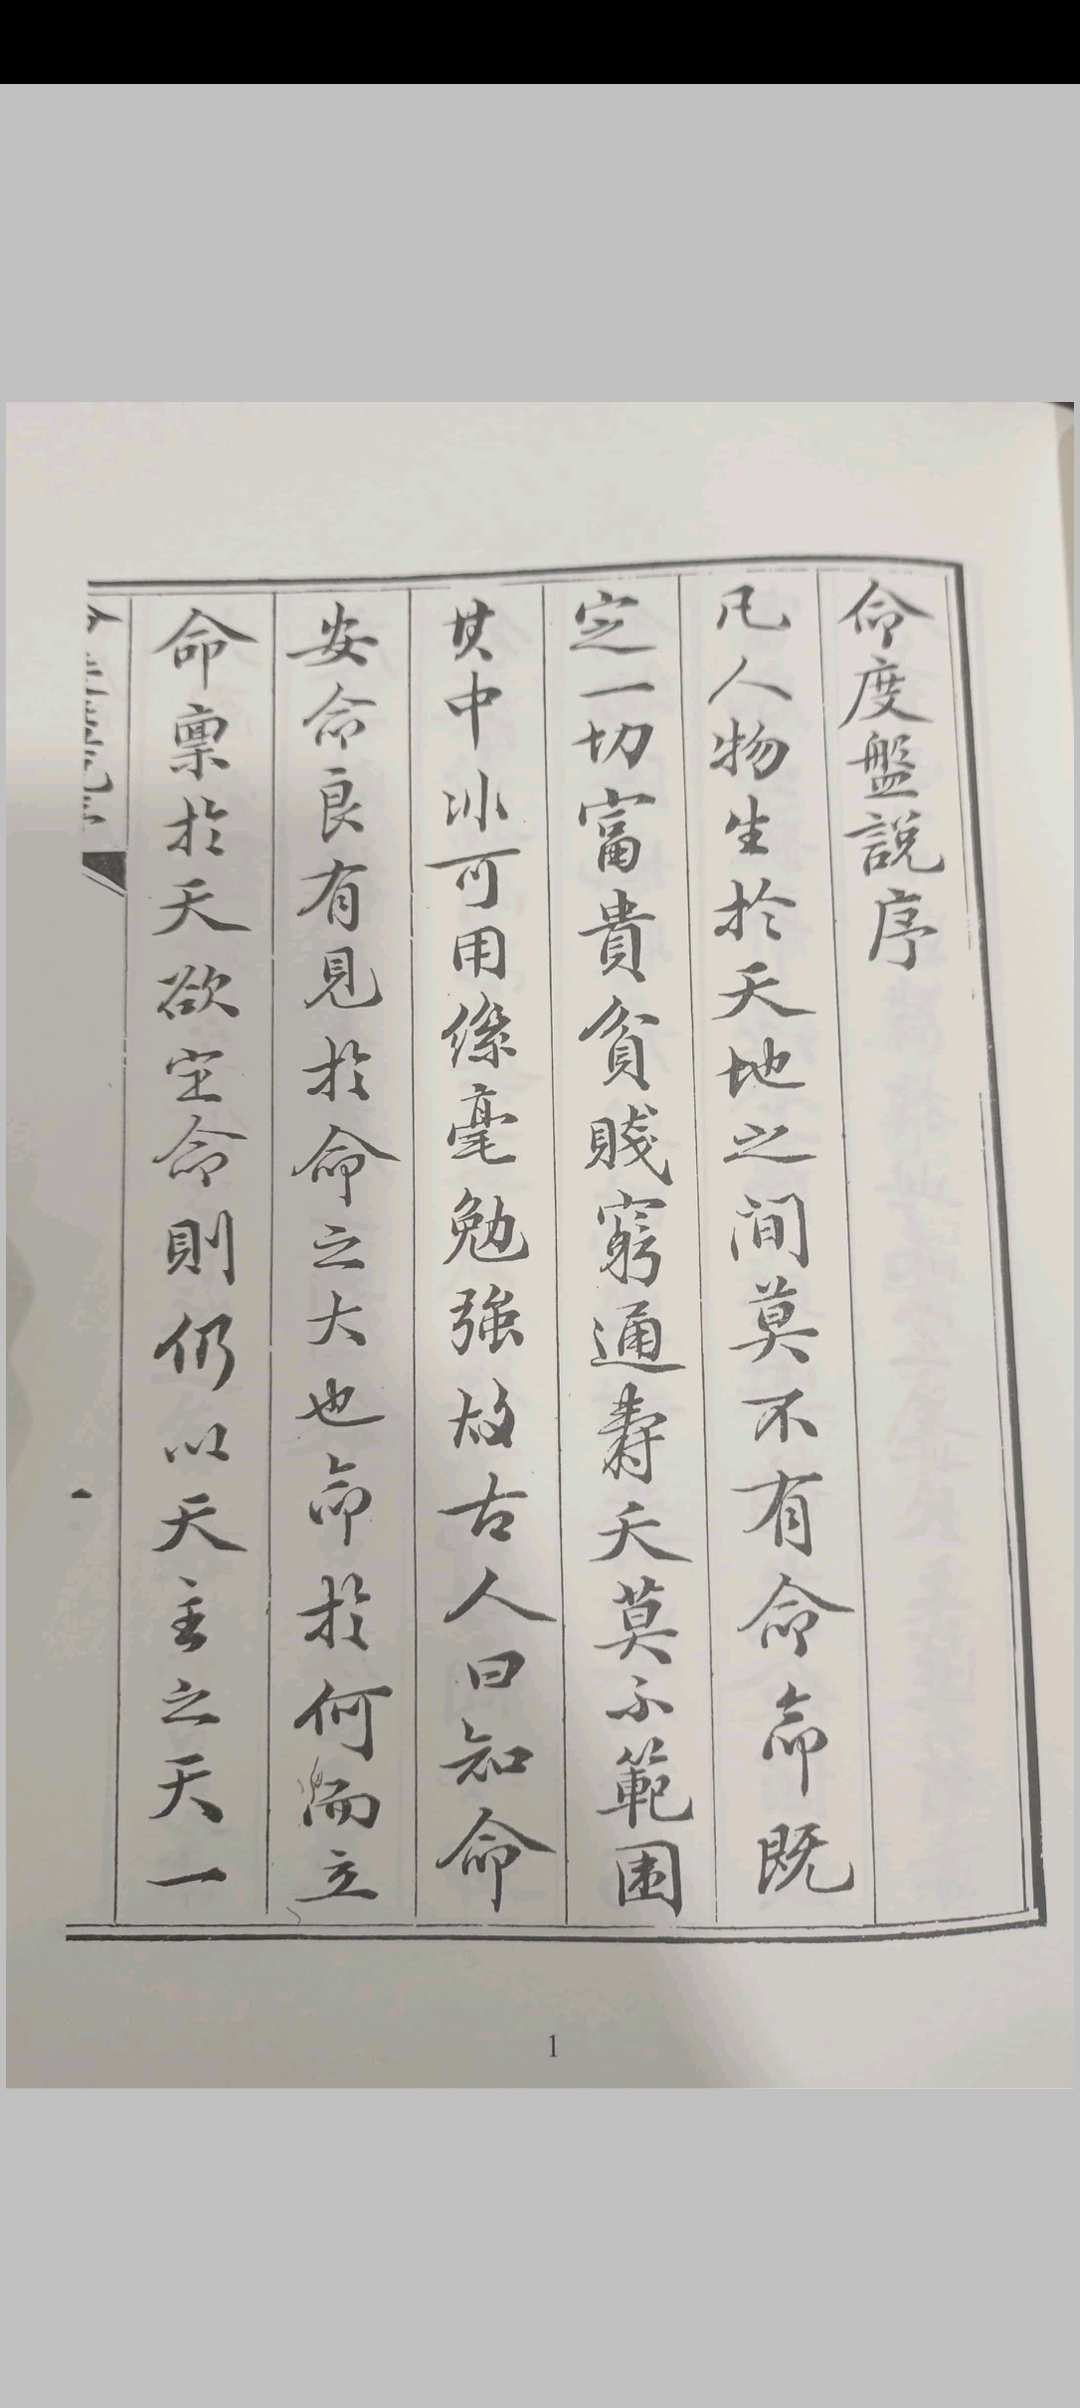 命度盤說序
凡人物生於天地之间莫不有命命既
定一切富貴貧賤窮通壽夭莫不範围
其中非可用絲毫勉強故古人曰知命
安命良有見於命之大也命於何而立
命稟於天欲定命則仍以天主之天一
1